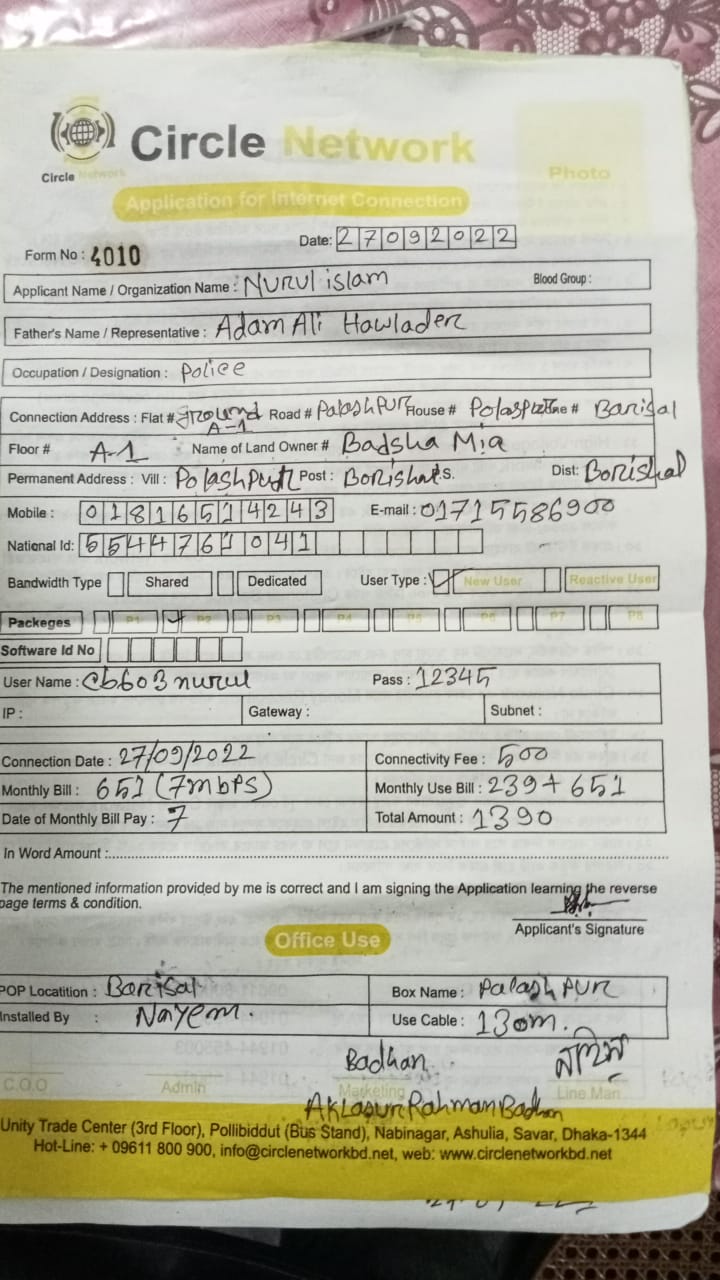 Circle Network
Circle Network
Photo
Application for Internet Connection
Date: 27092022
Form No : 4010
Applicant Name / Organization Name : Nurul islam Blood Group :
Father's Name / Representative : Adam Ali Hawlader
Occupation / Designation : Police
Connection Address : Flat # ground A-1 Road # Palashpur House # Barisal
Floor # A-1 Name of Land Owner # Badsha Mia
Permanent Address : Vill : Polashpur Post : Borishal P.S. Dist: Borishal
Mobile : 01816514243 E-mail : 01715586900
National Id: 5544761041
Bandwidth Type Shared Dedicated User Type : New User Reactive User
Packeges P1 P2 P3 P4 P5 P6 P7 P8
Software Id No
User Name : cb603nurul Pass : 12345
IP : Gateway : Subnet :
Connection Date : 27/09/2022 Connectivity Fee : 500
Monthly Bill : 651 (7mbps) Monthly Use Bill : 239+651
Date of Monthly Bill Pay : 7 Total Amount : 1390
In Word Amount :
The mentioned information provided by me is correct and I am signing the Application learning the reverse
page terms & condition.
Applicant's Signature
Office Use
POP Locatition : Barisal Box Name : Palashpur
Installed By : Nayem. Use Cable : 130m.
Badhan
C.O.O Admin Marketing Line Man
Aklasur Rahman Badhan
Unity Trade Center (3rd Floor), Pollibiddut (Bus Stand), Nabinagar, Ashulia, Savar, Dhaka-1344
Hot-Line: + 09611 800 900, info@circlenetworkbd.net, web: www.circlenetworkbd.net